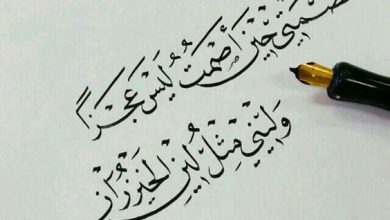 صَمْتِي حِيْنَ أَصْمُتُ لَيْسَ عَجْزًا
وَلِيْنِي مِثْلُ لِيْنِ الخَيْزُرَانِ